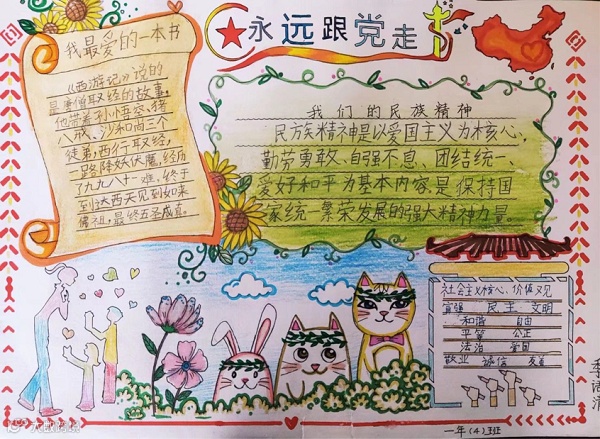 永远跟党走
我最爱的一本书
《西游记》说的
是唐僧取经的故事。
他带着孙悟空、猪
八戒、沙和尚三个
徒弟,西行取经,
一路降妖伏魔,经历
了九九八十一难,终于
到达西天见到如来
佛祖,最终五圣成真。
我们的民族精神
民族精神是以爱国主义为核心,
勤劳勇敢、自强不息、团结统一、
爱好和平为基本内容,是保持国
家统一繁荣发展的强大精神力量。
社会主义核心价值观
富强 民主 文明
和谐 自由
平等 公正
法治 爱国
敬业 诚信 友善
一年(4)班